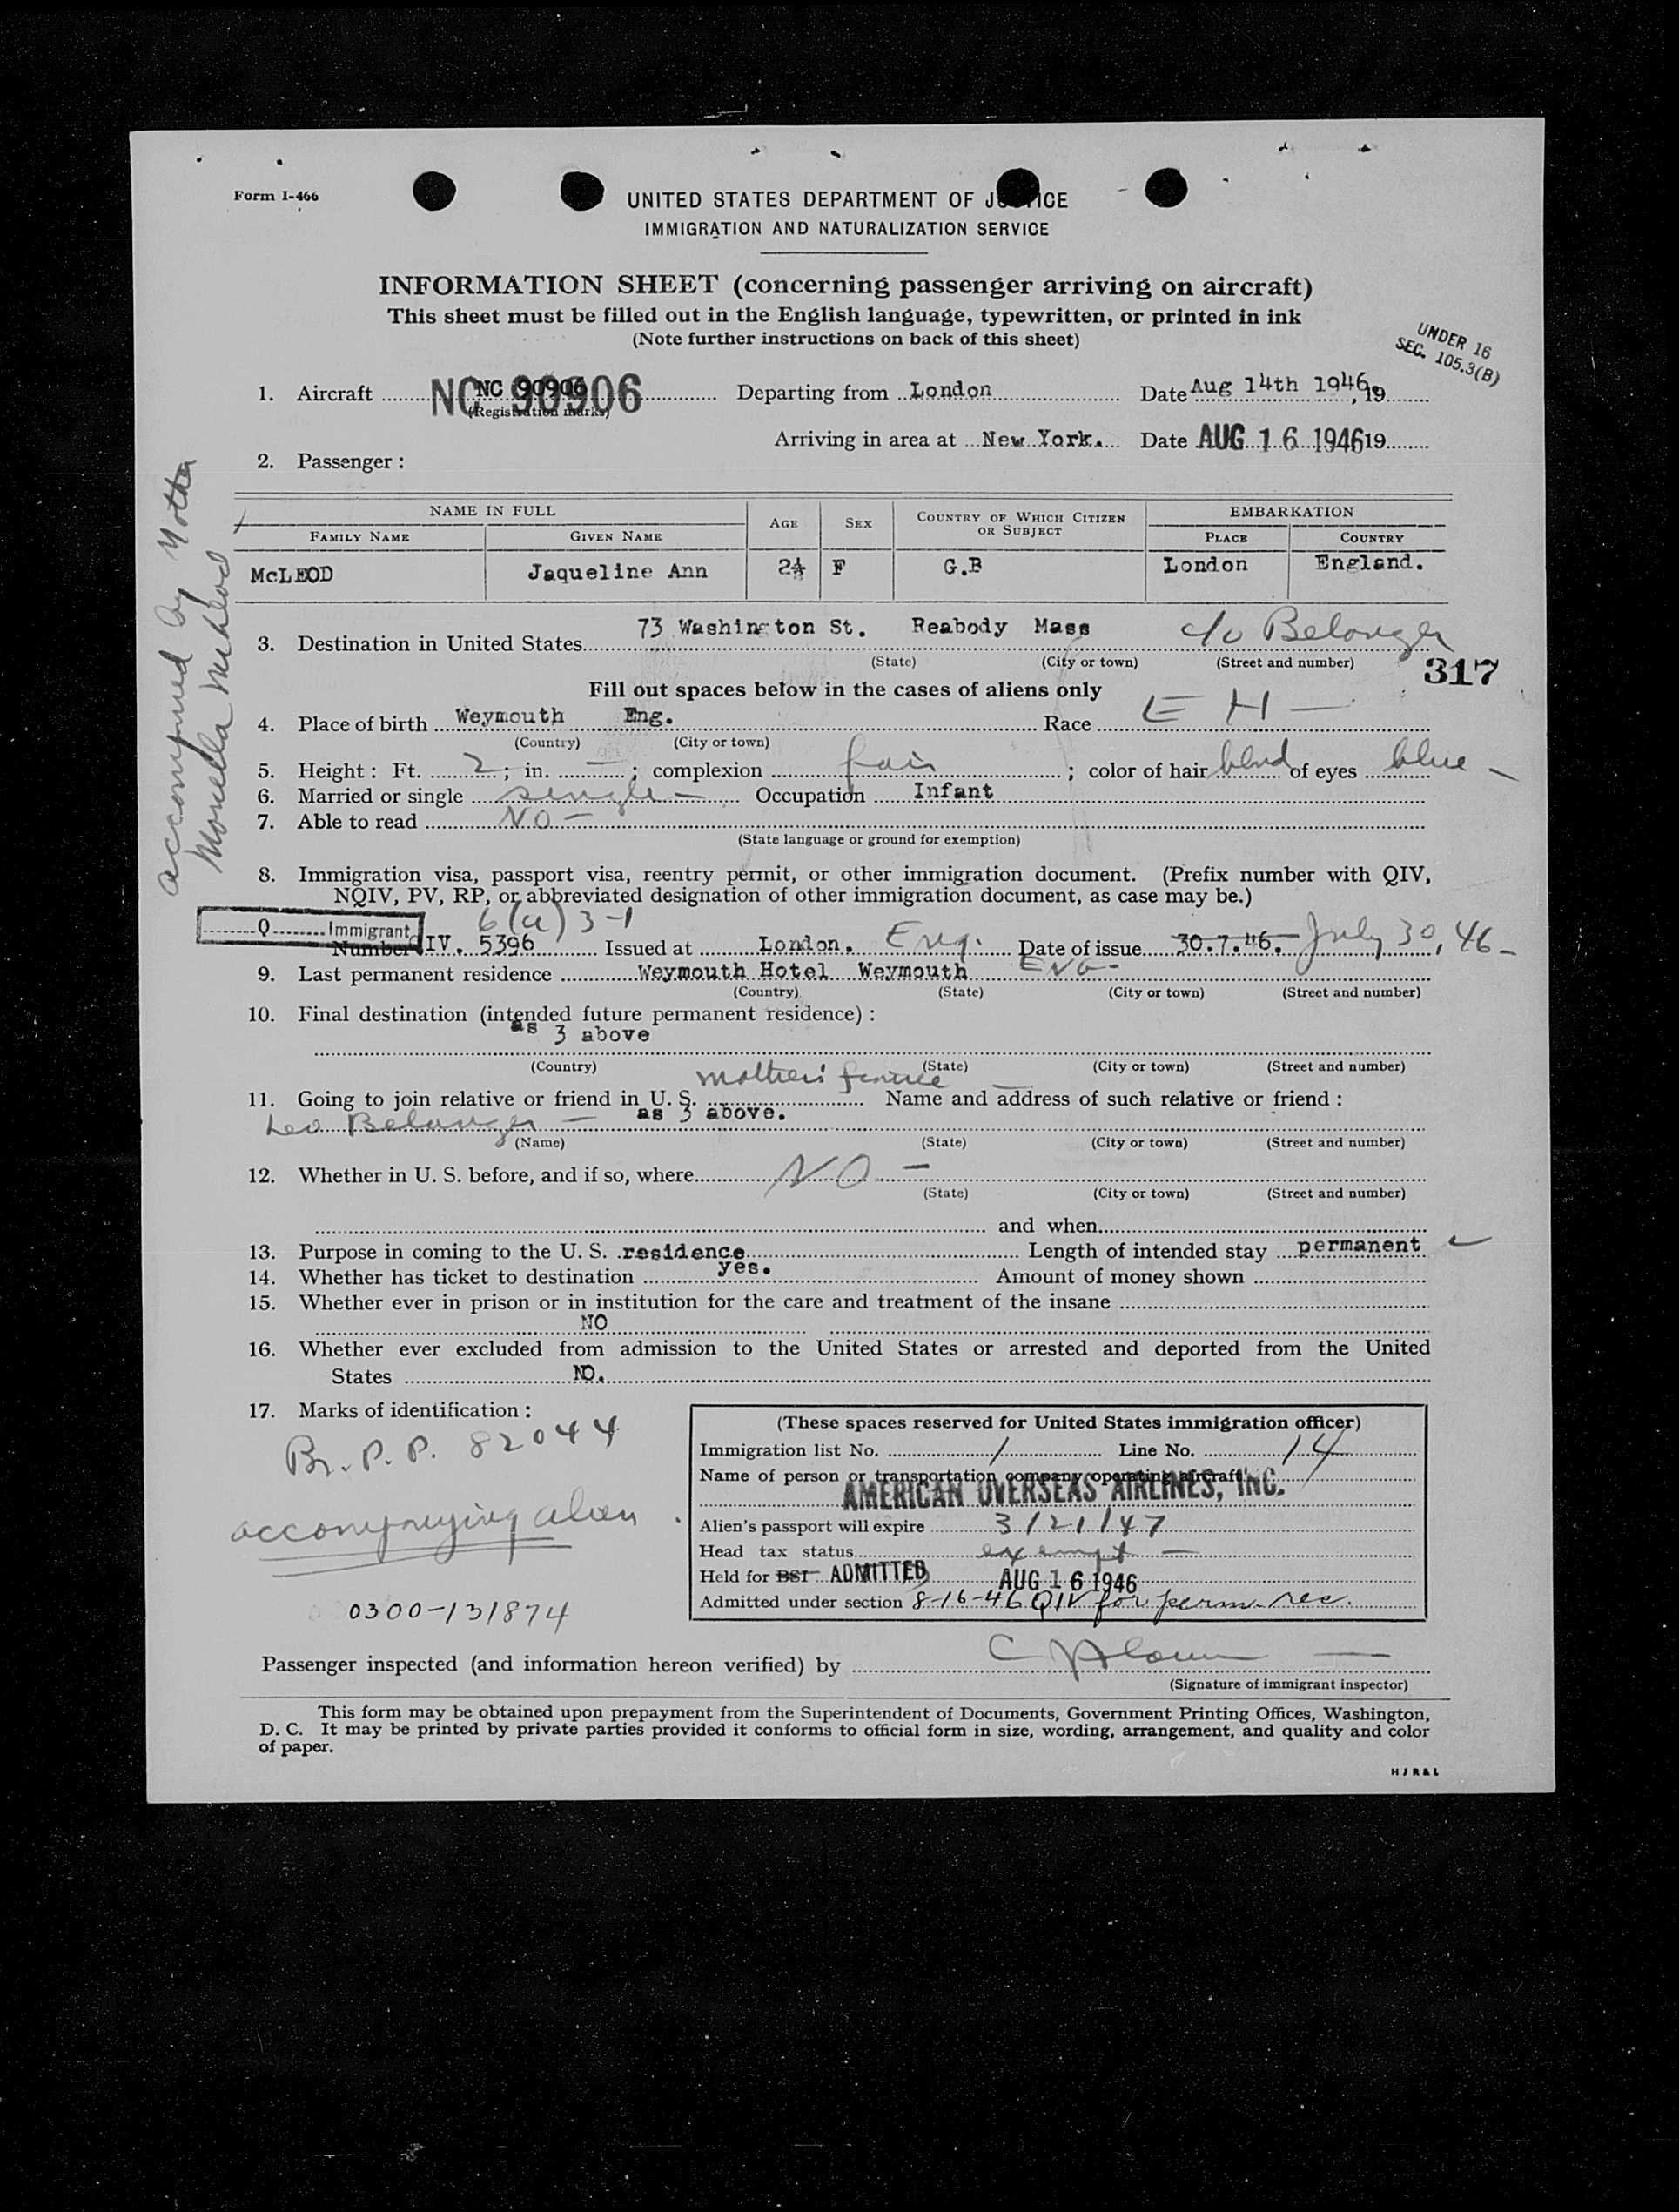 Form I-466
UNITED STATES DEPARTMENT OF JUSTICE
IMMIGRATION AND NATURALIZATION SERVICE
INFORMATION SHEET (concerning passenger arriving on aircraft)
This sheet must be filled out in the English language, typewritten, or printed in ink
(Note further instructions on back of this sheet)
UNDER 16
SEC. 105.3(B)
1. Aircraft NC 90906 NC 90906 Departing from London Date Aug 14th 1946. , 19
(Registration marks)
Arriving in area at New York. Date AUG 16 1946 19
2. Passenger :
accompanied by Mother
McLeod
NAME IN FULL AGE SEX COUNTRY OF WHICH CITIZEN OR SUBJECT EMBARKATION
FAMILY NAME GIVEN NAME PLACE COUNTRY
McLEOD Jaqueline Ann 2½ F G.B London England.
3. Destination in United States 73 Washington St. Reabody Mass c/o Belanger
(State) (City or town) (Street and number)
317
Fill out spaces below in the cases of aliens only
4. Place of birth Weymouth Eng. Race E H —
(Country) (City or town)
5. Height : Ft. 2 ; in. — ; complexion fair ; color of hair blnd of eyes blue —
6. Married or single single — Occupation Infant
7. Able to read NO —
(State language or ground for exemption)
8. Immigration visa, passport visa, reentry permit, or other immigration document. (Prefix number with QIV,
NQIV, PV, RP, or abbreviated designation of other immigration document, as case may be.)
Q Immigrant 6(a)3-1
Number IV. 5396 Issued at London. Eng. Date of issue 30.7.46. July 30, 46 —
9. Last permanent residence Weymouth Hotel Weymouth ENG —
(Country) (State) (City or town) (Street and number)
10. Final destination (intended future permanent residence) :
as 3 above
(Country) (State) (City or town) (Street and number)
mother's fiancee —
11. Going to join relative or friend in U. S. Name and address of such relative or friend :
Leo Belanger — as 3 above.
(Name) (State) (City or town) (Street and number)
12. Whether in U. S. before, and if so, where NO —
(State) (City or town) (Street and number)
and when
13. Purpose in coming to the U. S. residence Length of intended stay permanent
14. Whether has ticket to destination yes. Amount of money shown
15. Whether ever in prison or in institution for the care and treatment of the insane
NO
16. Whether ever excluded from admission to the United States or arrested and deported from the United
States NO.
17. Marks of identification :
Br. P. P. 82044
accompanying alien
0300-131874
(These spaces reserved for United States immigration officer)
Immigration list No. 1 Line No. 14
Name of person or transportation company operating aircraft
AMERICAN OVERSEAS AIRLINES, INC.
Alien's passport will expire 3/21/47
Head tax status exempt —
Held for BSI ADMITTED AUG 16 1946
Admitted under section 8-16-46 QIV for perm. res.
Passenger inspected (and information hereon verified) by
(Signature of immigrant inspector)
This form may be obtained upon prepayment from the Superintendent of Documents, Government Printing Offices, Washington,
D. C. It may be printed by private parties provided it conforms to official form in size, wording, arrangement, and quality and color
of paper.
H J R & L